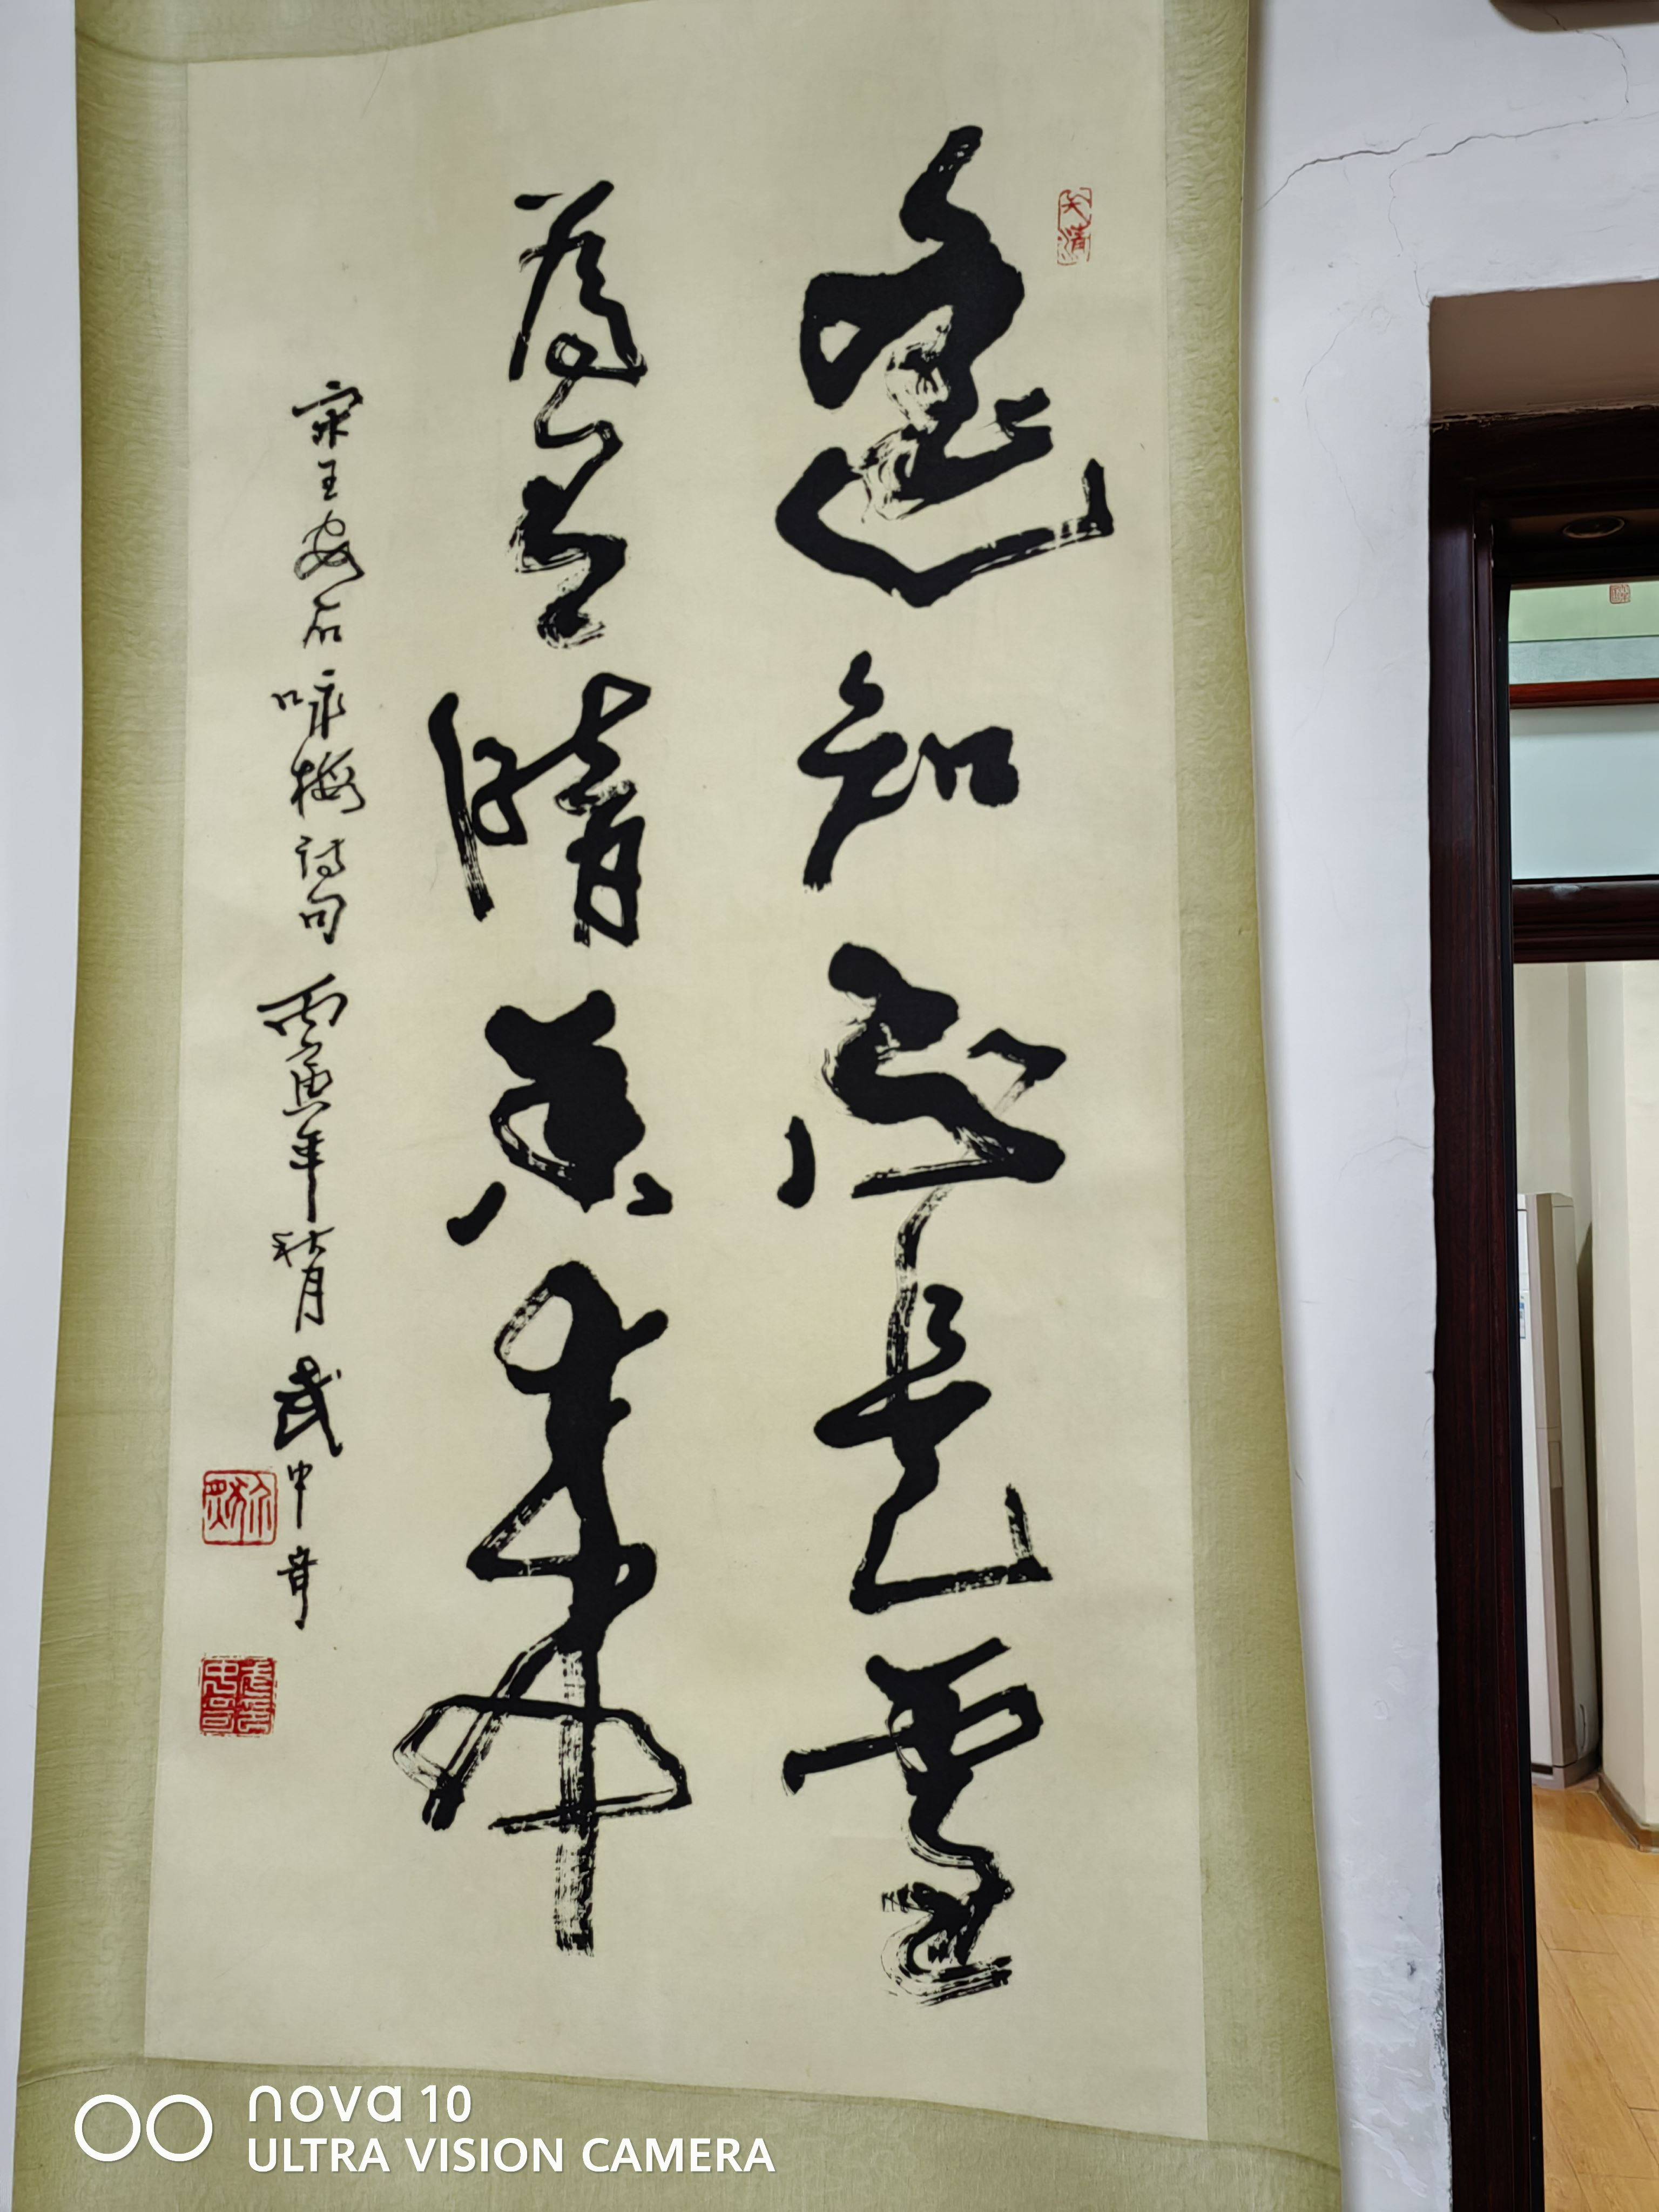 遙知不是雪
為有暗香來
宋王安石詠梅詩句 丙寅年秋月 武中奇
nova 10
ULTRA VISION CAMERA